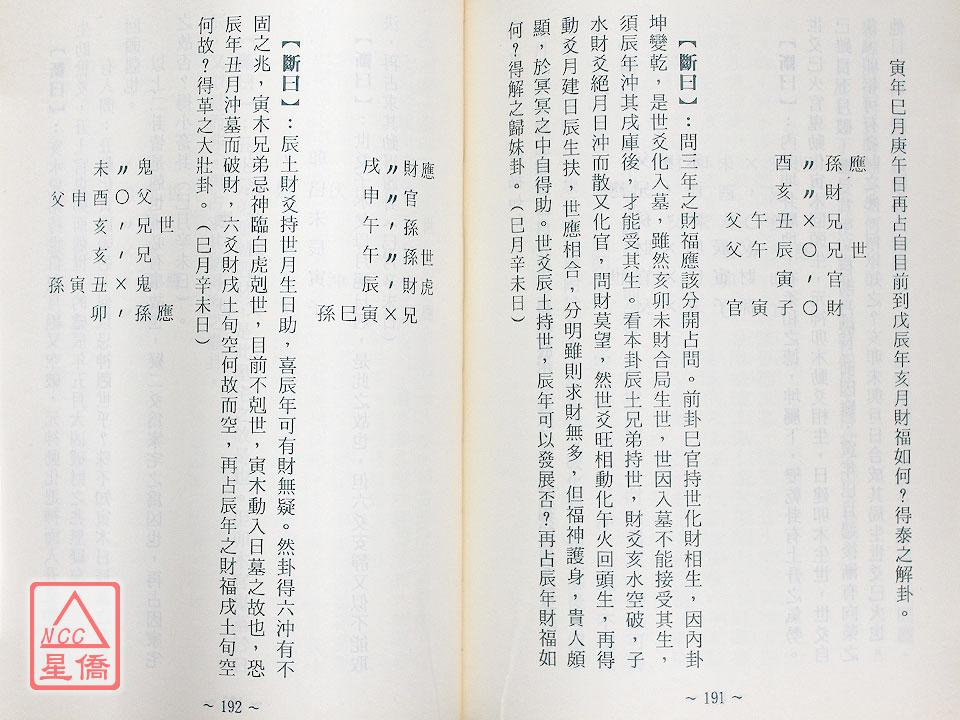 寅年巳月庚午日再占自目前到戊辰年亥月財福如何？得泰之解卦。
酉〃孫應
亥〃財
父午丑×兄
父午辰○兄世
寅′官
官寅子○財
【斷曰】：問三年之財福應該分開占問。前卦巳官持世化財相生，因內卦
坤變乾，是世爻化入墓，雖然亥卯未財合局生世，世因入墓不能接受其生，
須辰年沖其戌庫後，才能受其生。看本卦辰土兄弟持世，財爻亥水空破，子
水財爻絕月日沖而散又化官，問財莫望，然世爻旺相動化午火回頭生，再得
動爻月建日辰生扶，世應相合，分明雖則求財無多，但福神護身，貴人頗
顯，於冥冥之中自得助。世爻辰土持世，辰年可以發展否？再占辰年財福如
何？得解之歸妹卦。（巳月辛未日）
~ 191 ~
戌〃財應
申〃官
午′孫
午〃孫世
辰′財虎
孫巳寅×兄
【斷曰】：辰土財爻持世月生日助，喜辰年可有財無疑。然卦得六沖有不
固之兆，寅木兄弟忌神臨白虎剋世，目前不剋世，寅木動入日墓之故也，恐
辰年丑月沖墓而破財，六爻財戌土旬空何故而空，再占辰年之財福戌土旬空
何故？得革之大壯卦。（巳月辛未日）
未〃鬼
父申酉○父
亥′兄世
亥′兄
孫寅丑×鬼
卯′孫應
~ 192 ~
NCC
星僑